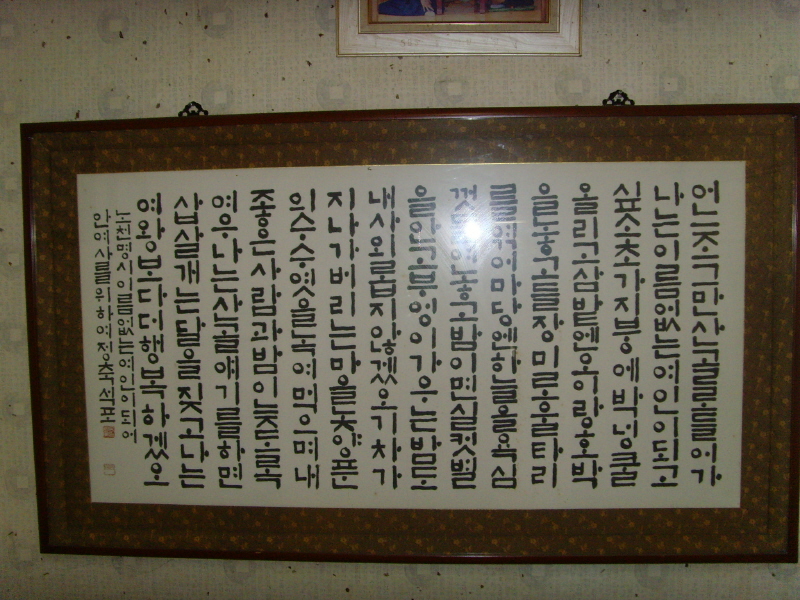 어느조그만산골로들어가
나는이름없는여인이되고
싶소초가지붕에박넝쿨
올리고삼밭에오이랑호박
을놓고들장미로울타리
를엮어마당엔하늘을욕심
껏들여놓고밤이면실컷별
을안고부엉이가우는밤도
내사외롭지않겠오기차가
지나가버리는마을놋양푼
의수수엿을녹여먹으며내
좋은사람과밤이늦도록
여우나는산골얘기를하면
삽살개는달을짖고나는
여왕보다더행복하겠오
노천명시이름없는여인이되어
안여사를위하여정축석포